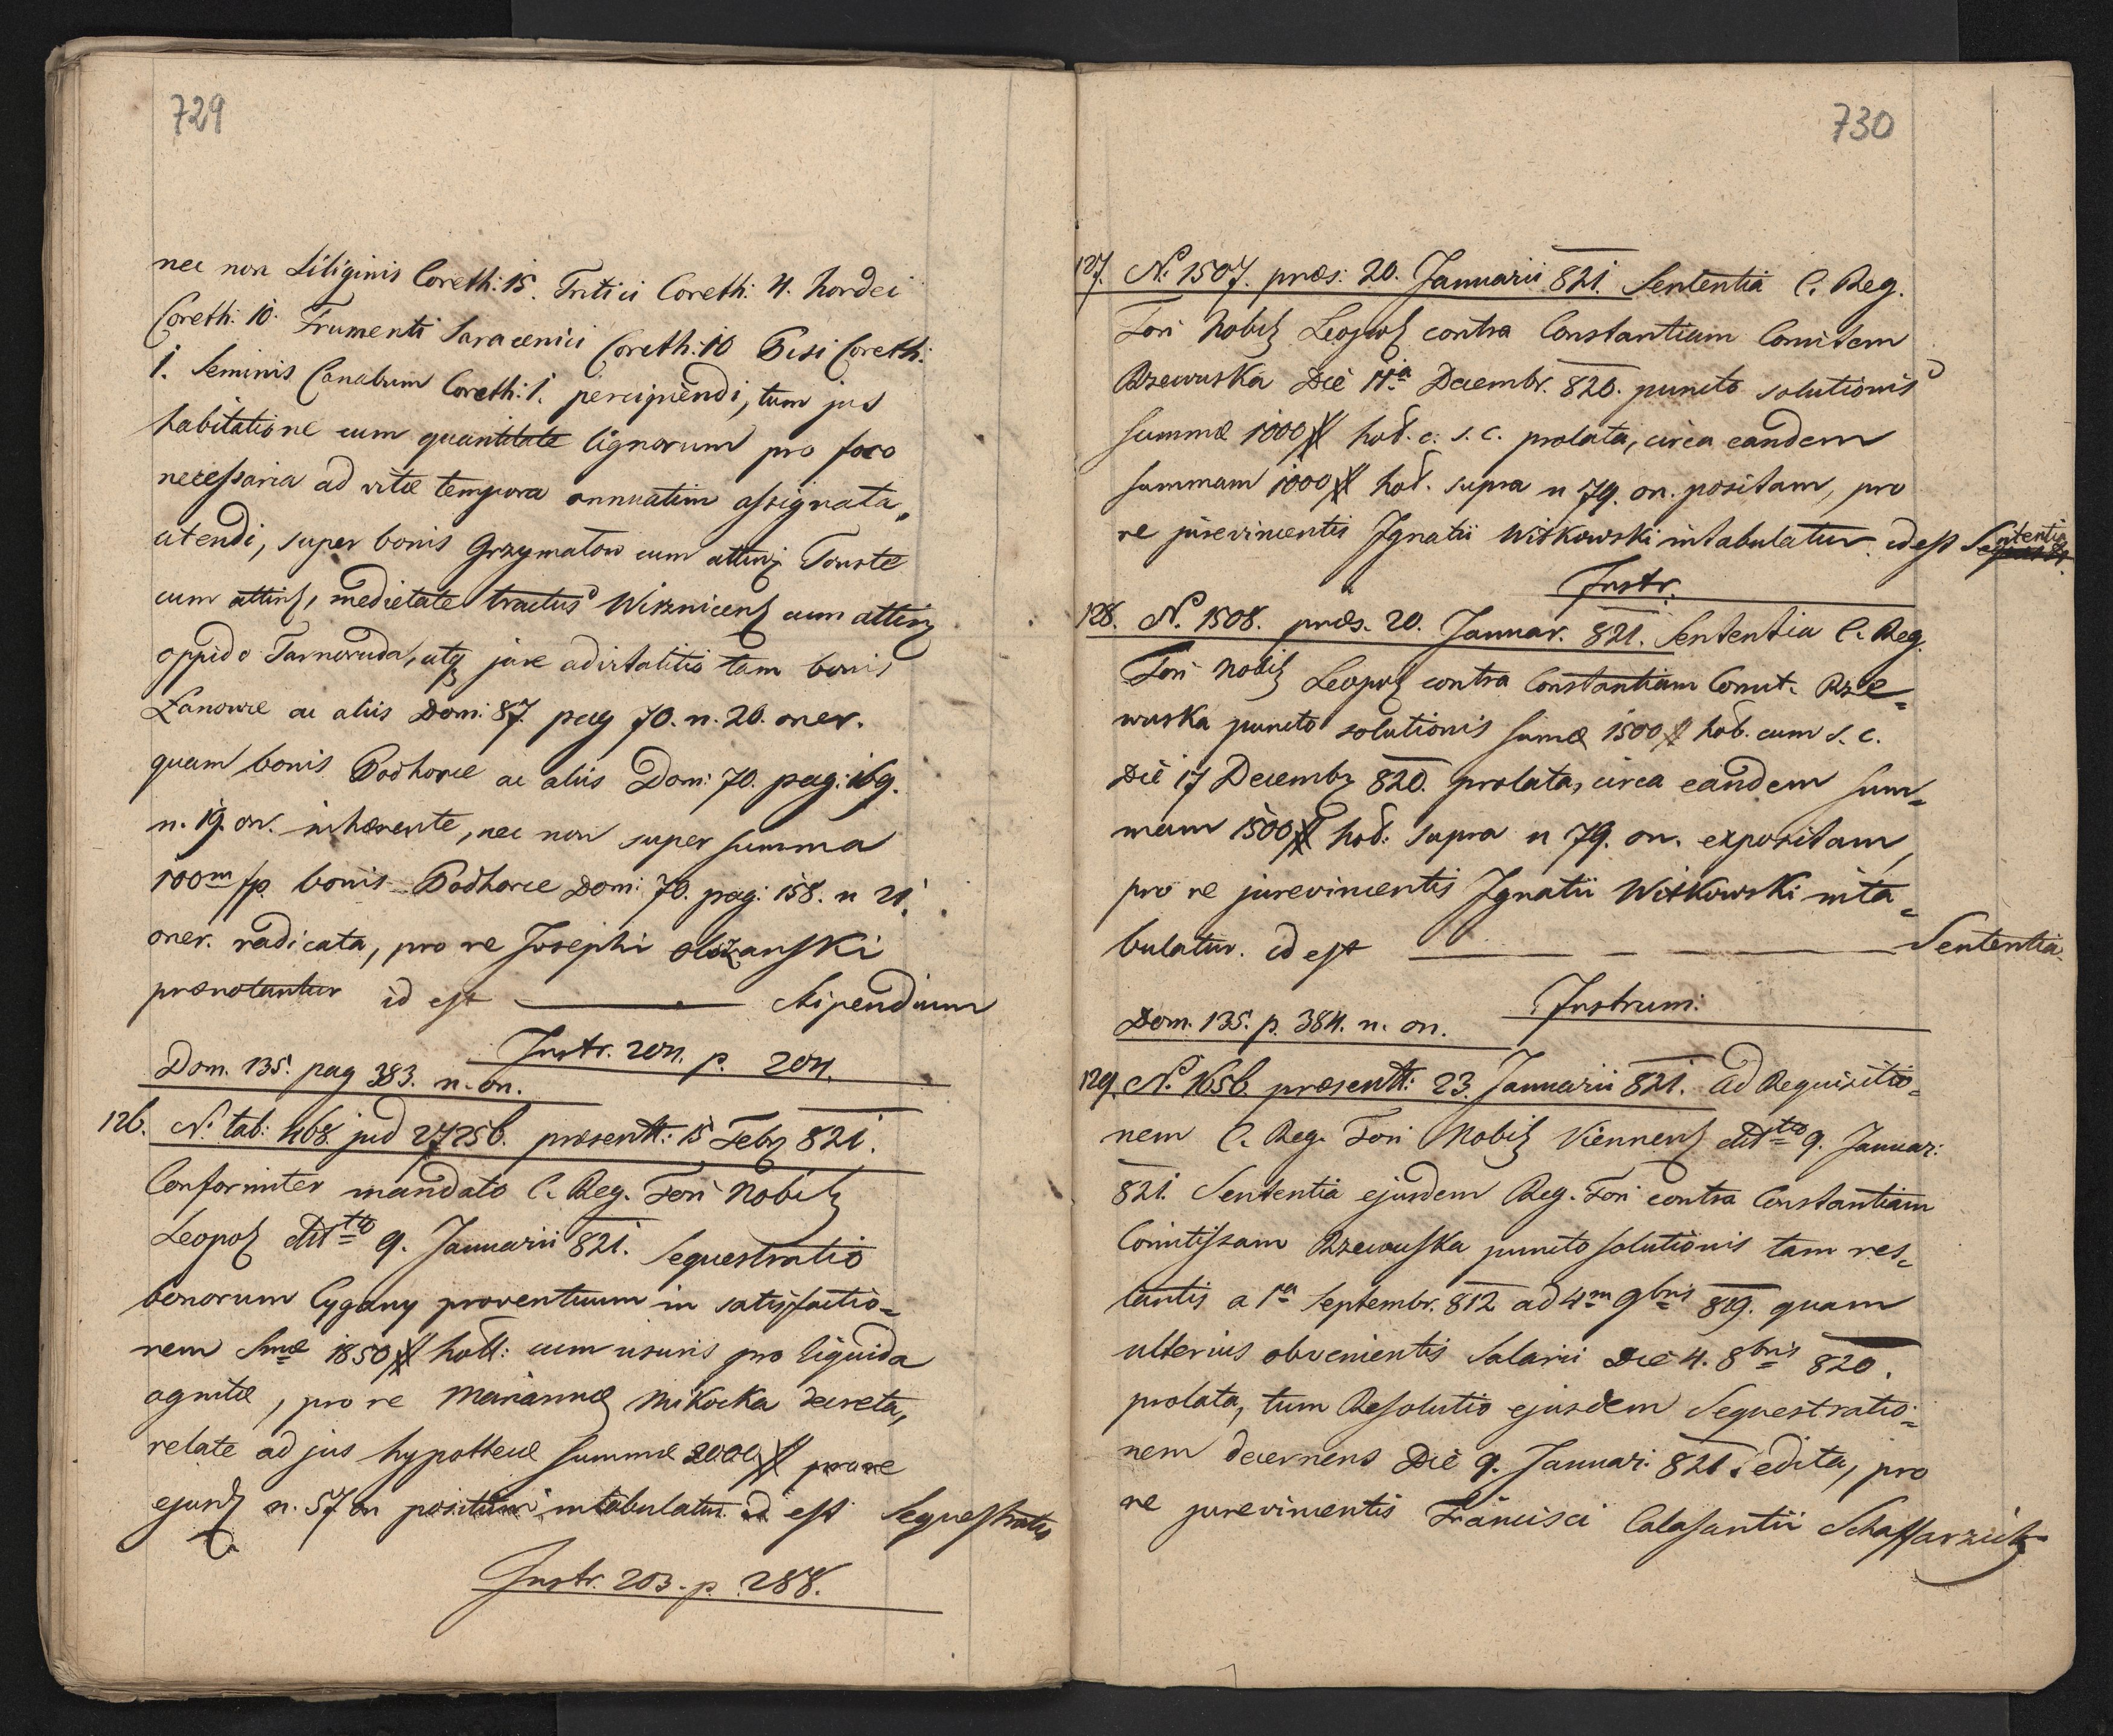 729
nec non Siliginis Coreth: 15. Tritici Coreth: 4. hordei
Coreth: 10. Frumenti Saracenici Coreth: 10 Pisi Coreth:
1. Seminis Canabum Coreth: 1. percipiendi, tum jus
habitatione cum quantitate lignorum pro foco
necessaria ad vitæ tempora annuatim assignata,
utendi, super bonis Grzymałow cum attin Touste
cum attin, medietate tractus Wirznicens cum attin
oppido Tarnoruda, atq jure advitalitio tam bonis
Łanowce ac aliis Dom: 87. pag 70. n. 20. oner.
quam bonis Podhorce ac aliis Dom: 70. pag: 169.
n. 19. on. inhærente, nec non super summa
100m fp. bonis Podhorce Dom: 70. pag: 158. n 21.
oner. radicata, pro re Josephi
prænotantur id est — Stipendium
Instr. 204. p. 204.
Dom. 135. pag 383. n. on.
126. N. tab: 468. jud 27256. præsentt: 15 Febr 821.
Conformiter mandato C. Reg. Fori Nobil
Leopol ddtto 9. Januarii 821. Sequestratio
bonorum Cygany proventuum in satisfactio=
nem Smæ 1850 # holl: cum usuris pro liquida
agnitæ, pro re Mariannæ Mikocka decreta,
relate ad jus hypothecæ summæ 2000 # pro re
ejusd n. 57 on positum intabulatur id est Sequestratio
Instr. 203. p. 288.
730
127. N. 1507. præs: 20. Januarii 821. Sententia C. Reg.
Fori Nobil Leopol contra Constantiam Comitem
Rzewuska Die 11a Decembr. 820. puncto solutionis
summæ 1000 # hol. c. s. c. prolata, circa eandem
summam 1000 # hol. supra n 79. on. positam, pro
re jurevincentis Ignatii Witkowski intabulatur. id est Sententia
Instr.
128. N. 1508. præs. 20. Januar. 821. Sententia C. Reg.
Fori Nobil Leopol contra Constantiam Comit. Rze=
wuska puncto solutionis sumæ 1500 # hol. cum s. c.
Die 17 Decembr 820. prolata, circa eandem sum=
mam 1500 # hol: supra n 79. on. expositam,
pro re jurevincentis Ignatii Witkowski inta=
bulatur. id est — Sententia
Instrum:
Dom. 135. p. 384. n. on.
129. N. 1656. præsentt: 23. Januarii 821. ad Requisitio=
nem C. Reg. Fori Nobil Viennens ddtto 9. Januar:
821. Sententia ejusdem Reg. Fori contra Constantiam
Comitissam Rzewuska puncto solutionis tam res=
tantis a 1a Septembr. 812 ad 4m 9bris 819. quam
ulterius obvenientis Salarii Die 4. 8bris 820.
prolata, tum Resolutio ejusdem Sequestratio=
nem decernens Die 9. Januar: 821. edita, pro
re jurevincentis Francisci Calasantii Schaffarzick